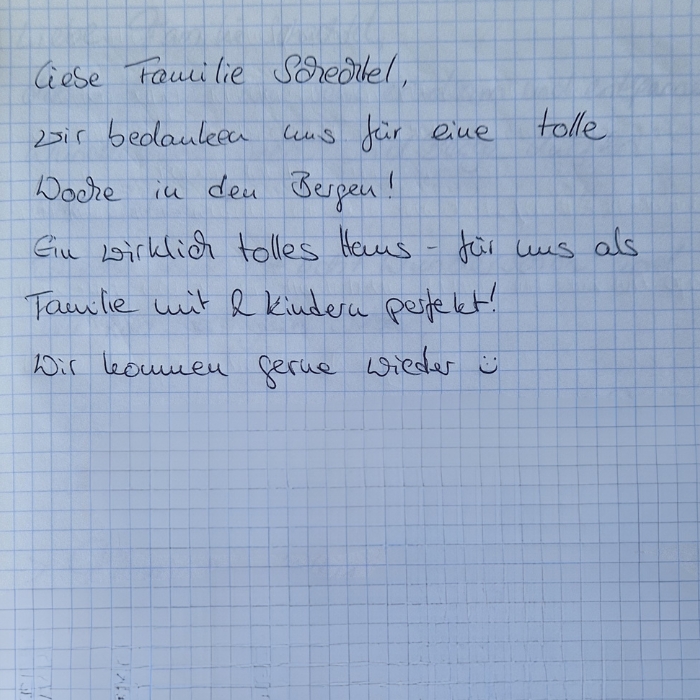 Liebe Familie Schechtel,
wir bedanken uns für eine tolle
Woche in den Bergen!
Ein wirklich tolles Haus - für uns als
Familie mit 2 Kindern perfekt!
Wir kommen gerne wieder ☺